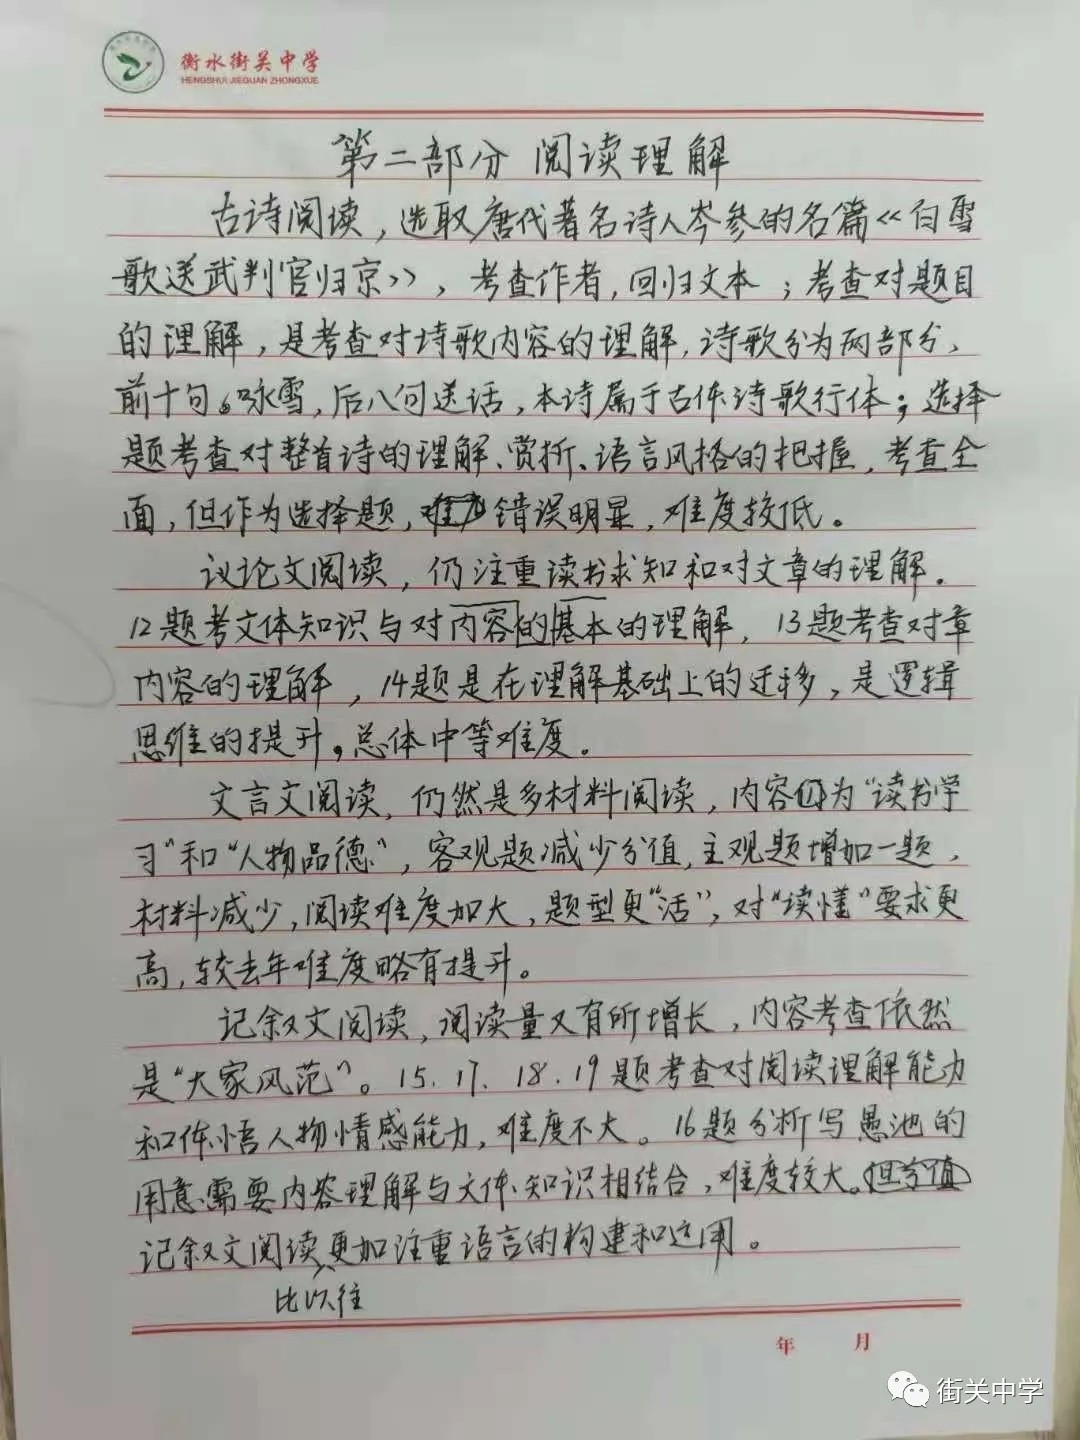 衡水街关中学
HENGSHUI JIEGUAN ZHONGXUE
第二部分 阅读理解
古诗阅读，选取唐代著名诗人岑参的名篇《白雪
歌送武判官归京》，考查作者，回归文本；考查对题目
的理解，是考查对诗歌内容的理解，诗歌分为两部分、
前十句。咏雪，后八句送话，本诗属于古体诗歌行体；选择
题考查对整首诗的理解、赏析、语言风格的把握，考查全
面，但作为选择题，错误明显，难度较低。
议论文阅读，仍注重读书求知和对文章的理解。
12题考文体知识与对内容的基本的理解，13题考查对章
内容的理解，14题是在理解基础上的迁移，是逻辑
思维的提升，总体中等难度。
文言文阅读，仍然是多材料阅读，内容仍为“读书学
习”和“人物品德”，客观题减少分值，主观题增加一题，
材料减少，阅读难度加大，题型更“活”，对“读懂”要求更
高，较去年难度略有提升。
记叙文阅读，阅读量又有所增长，内容考查依然
是“大家风范”。15.17.18.19题考查对阅读理解能力
和体悟人物情感能力，难度不大。16题分析写愚池的
用意需要内容理解与文体知识相结合，难度较大。但分值
记叙文阅读更加注重语言的构建和运用。
比以往
年 月
街关中学